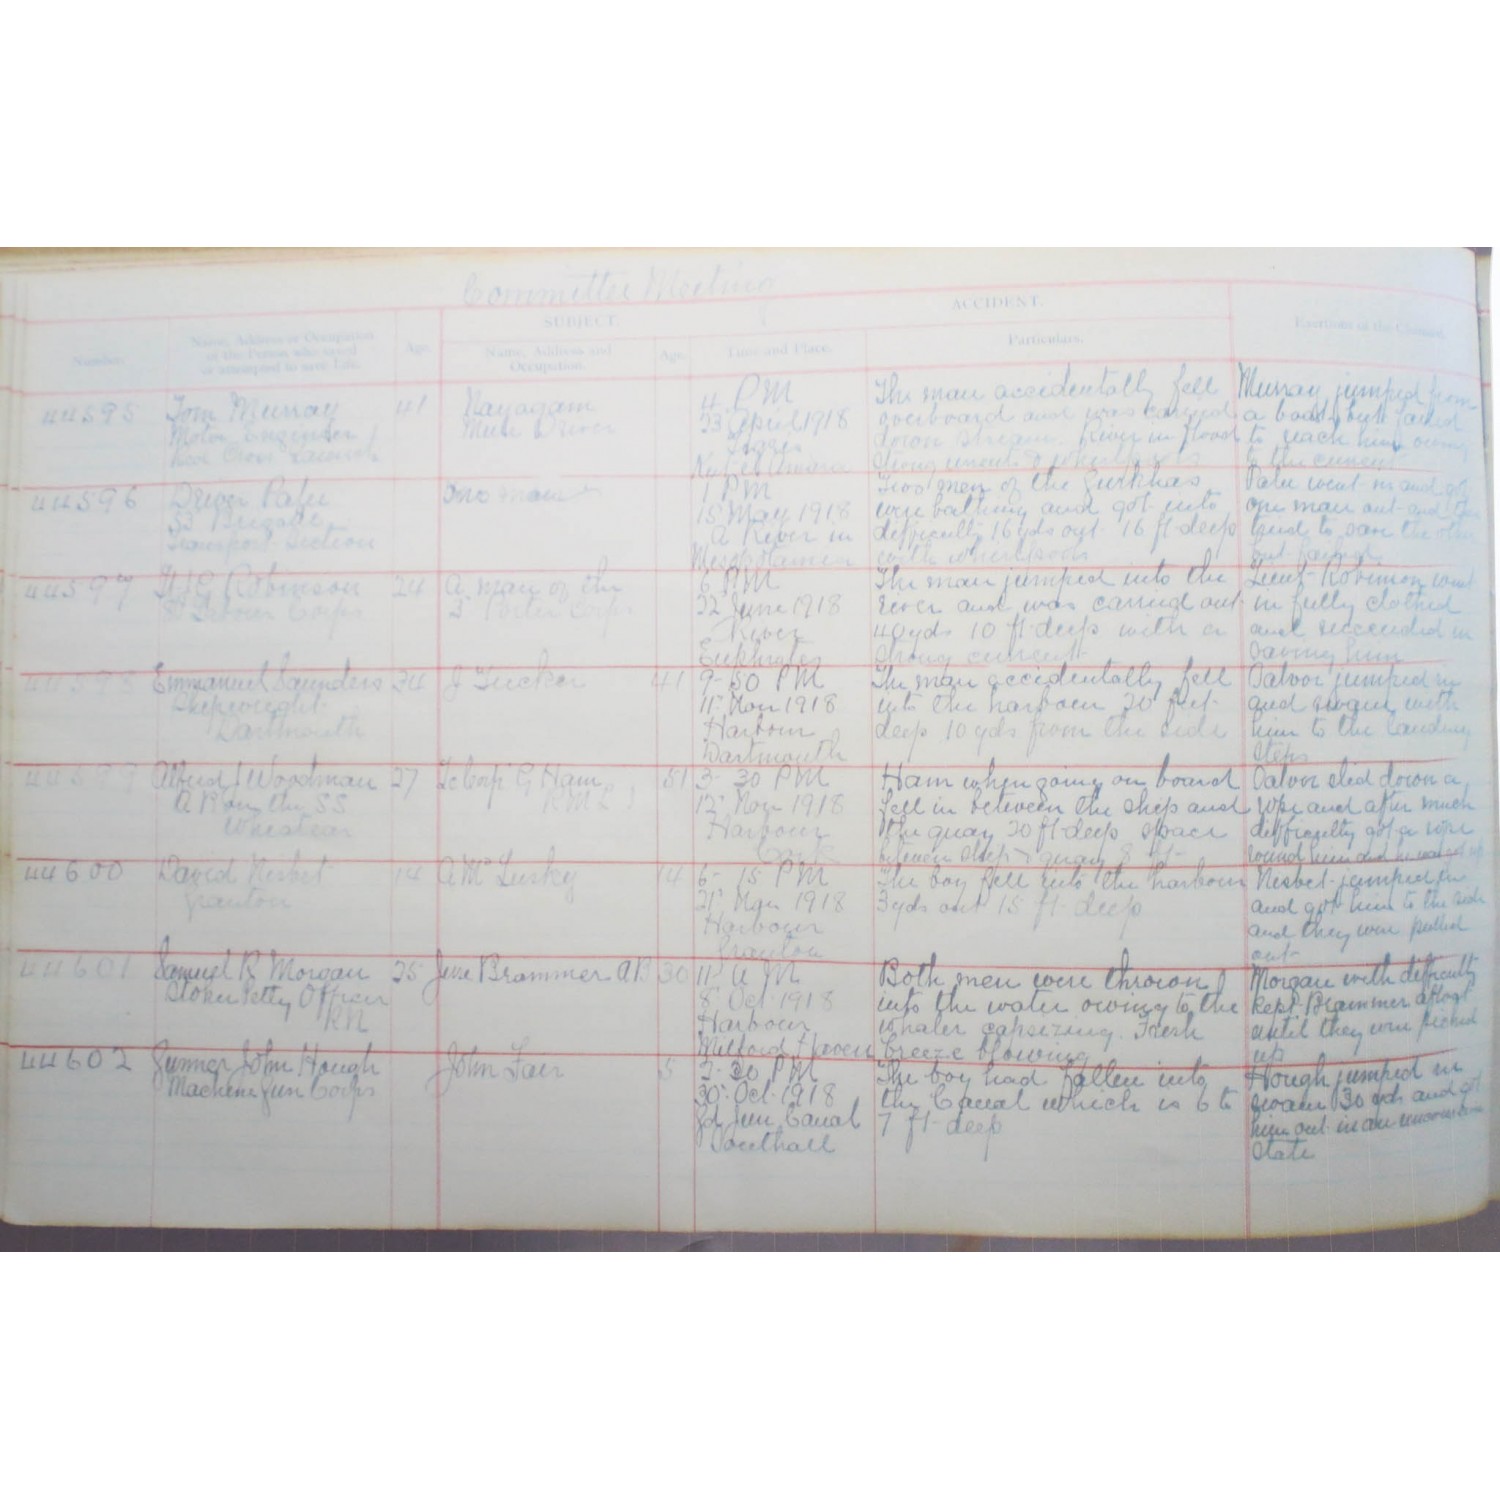 Committee Meeting
SUBJECT
ACCIDENT.
Number.
Name, Address or Occupation
of the Person who saved
or attempted to save Life.
Age.
Name, Address and
Occupation.
Age.
Time and Place.
Particulars.
Exertions of the Claimant.
44595
Tom Murray
Motor Engineer
Red Cross Launch
41
Nayagam
Mule Driver
4 PM
23 April 1918
Tigris
Kut el Amara
The man accidentally fell
overboard and was carried
down stream. River in flood
strong current &
Murray jumped from
a boat but failed
to reach him owing
to the current
44596
Driver
Brigade
Transport Section
Two men
1 PM
15 May 1918
A River in
Mesopotamia
Two men of the Gurkhas
were bathing and got into
difficulty 16 yds out 16 ft deep
with whirlpool
went in and got
one man out and then
tried to save the other
but failed
44597
Robinson
Labour Corps
24
A man of the
Porter Corps
6 PM
22 June 1918
River
Euphrates
The man jumped into the
river and was carried out
40 yds 10 ft deep with a
strong current
Lieut Robinson went
in fully clothed
and succeeded in
saving him
44598
Emmanuel Saunders
Shipwright
Dartmouth
34
J Tucker
41
9-50 PM
11 Nov 1918
Harbour
Dartmouth
The man accidentally fell
into the harbour 20 feet
deep 10 yds from the side
Salvor jumped in
and swam with
him to the landing
steps
44599
Alfred J Woodman
A B on the SS
Wheatear
27
Ham
51
3-30 PM
12 Nov 1918
Harbour
Ham when going on board
fell in between the ship and
the quay 20 ft deep space
between ship & quay 8 ft
Salvor slid down a
rope and after much
difficulty got a rope
round him and he was
44600
David Nisbet
Granton
14
A McLusky
14
6-15 PM
21 Mar 1918
Harbour
Granton
The boy fell into the harbour
3 yds out 15 ft deep
Nesbet jumped in
and got him to the side
and they were pulled
out
44601
Samuel R Morgan
Stoker Petty Officer
RN
25
Brammer AB
30
11 A M
8 Oct 1918
Harbour
Milford Haven
Both men were thrown
into the water owing to the
whaler capsizing. Fresh
breeze blowing
Morgan with difficulty
kept Brammer afloat
until they were picked
up
44602
Gunner John Hough
Machine Gun Corps
John Fair
5
2-30 PM
30 Oct 1918
Gd Junc Canal
Southall
The boy had fallen into
the Canal which is 6 to
7 ft deep
Hough jumped in
swam 30 yds and got
him out in an unconscious
state